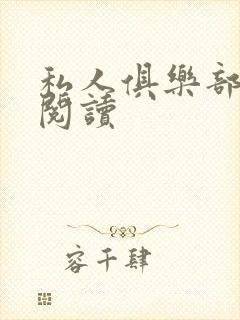 私人俱樂部
閱讀
容千肆